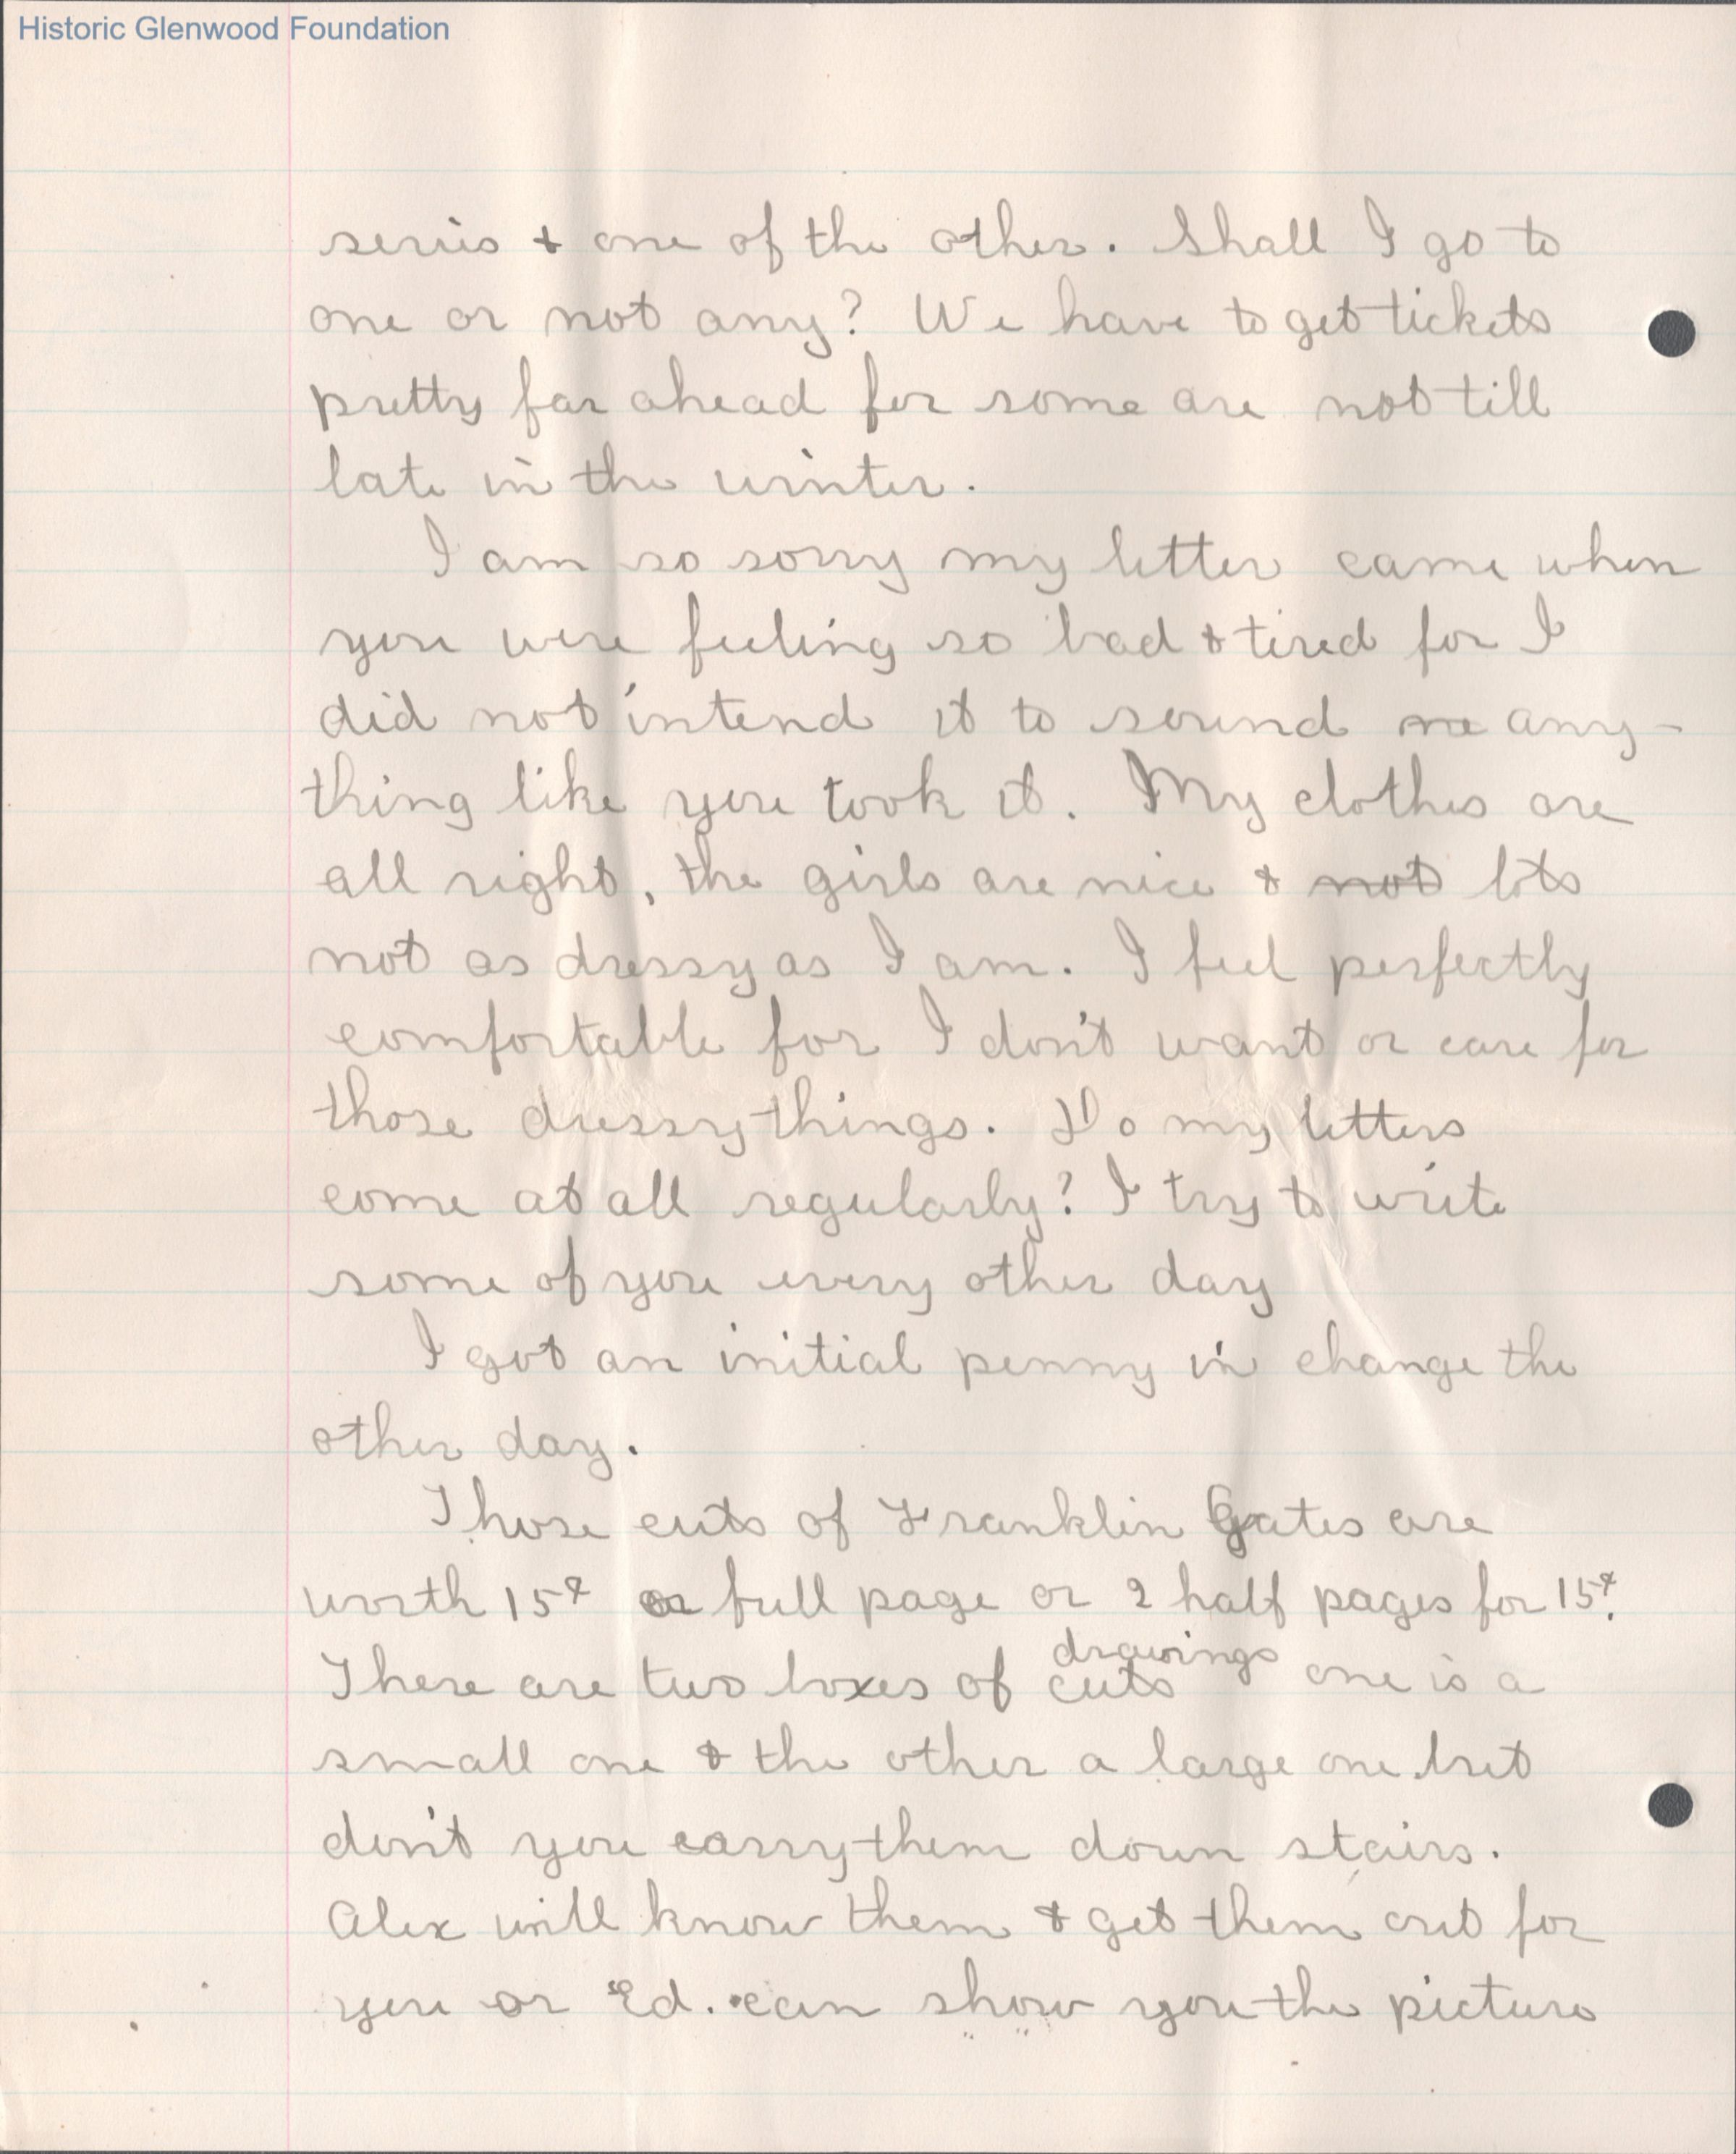 Historic Glenwood Foundation
series & one of the other. Shall I go to
one or not any? We have to get tickets
pretty far ahead for some are not till
late in the winter.
I am so sorry my letter came when
you were feeling so bad & tired for I
did not intend it to sound me any-
thing like you took it. My clothes are
all right, the girls are nice & not lots
not as dressy as I am. I feel perfectly
comfortable for I don't want or care for
those dressy things. Do my letters
come at all regularly? I try to write
some of you every other day
I got an initial penny in change the
other day.
Those cuts of Franklin Gates are
worth 15¢ or full page or 2 half pages for 15¢.
drawings
There are two boxes of cuts one is a
small one & the other a large one but
don't you carry them down stairs.
Alex will know them & get them out for
you or Ed. can show you the picture